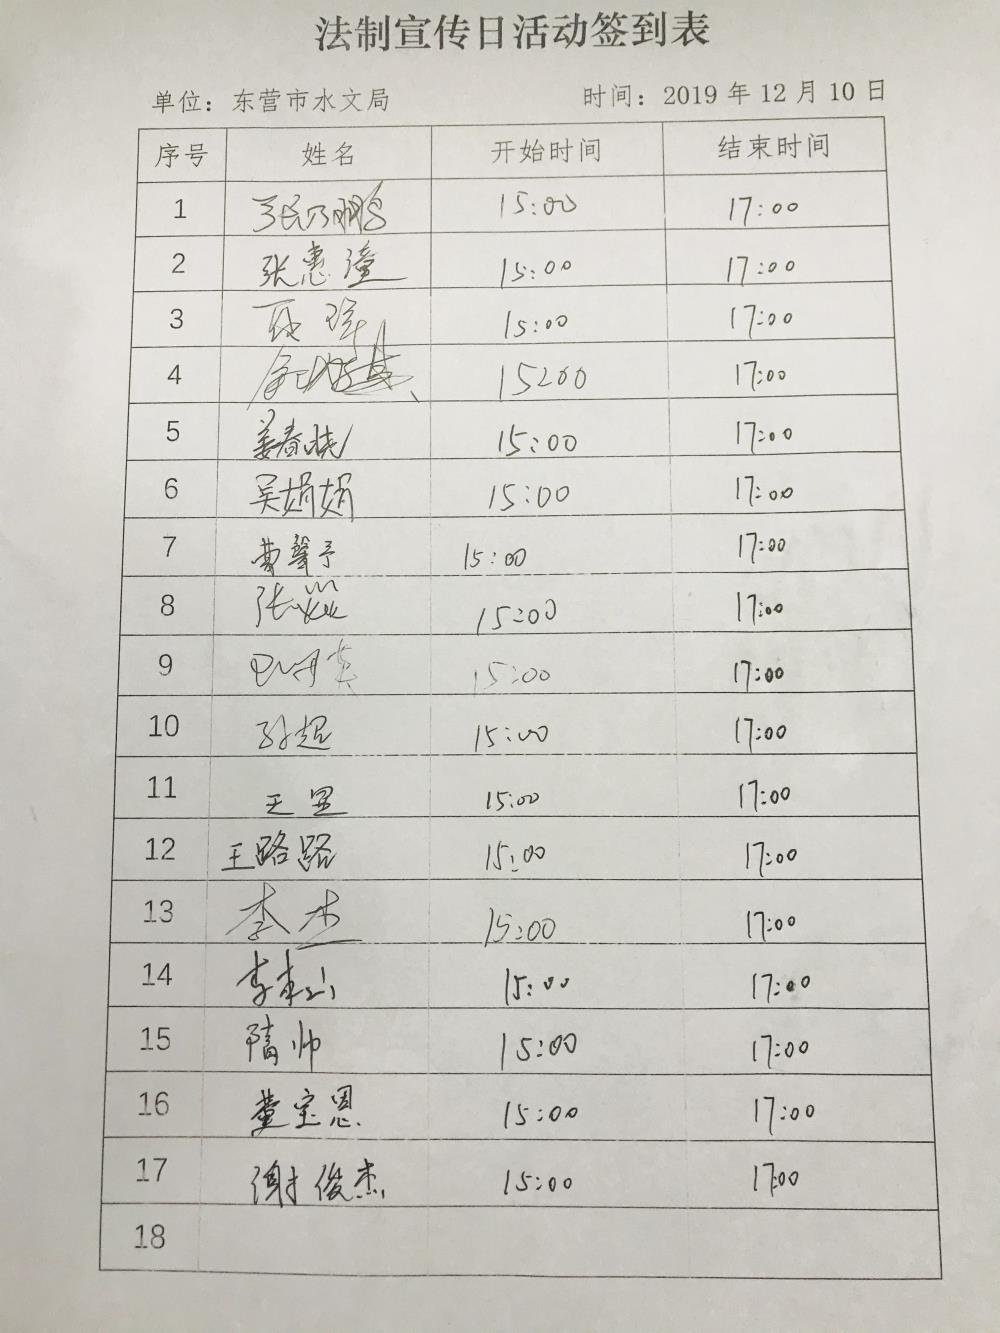 法制宣传日活动签到表
单位：东营市水文局 时间：2019 年 12 月 10 日
序号 姓名 开始时间 结束时间
1 张乃鹏 15:00 17:00
2 张惠潼 15:00 17:00
3 15:00 17:00
4 15:00 17:00
5 姜春晓 15:00 17:00
6 吴娟娟 15:00 17:00
7 曹馨予 15:00 17:00
8 张 15:00 17:00
9 15:00 17:00
10 孙超 15:00 17:00
11 王 15:00 17:00
12 王路路 15:00 17:00
13 李杰 15:00 17:00
14 李 15:00 17:00
15 隋帅 15:00 17:00
16 董宝恩 15:00 17:00
17 谢俊杰 15:00 17:00
18